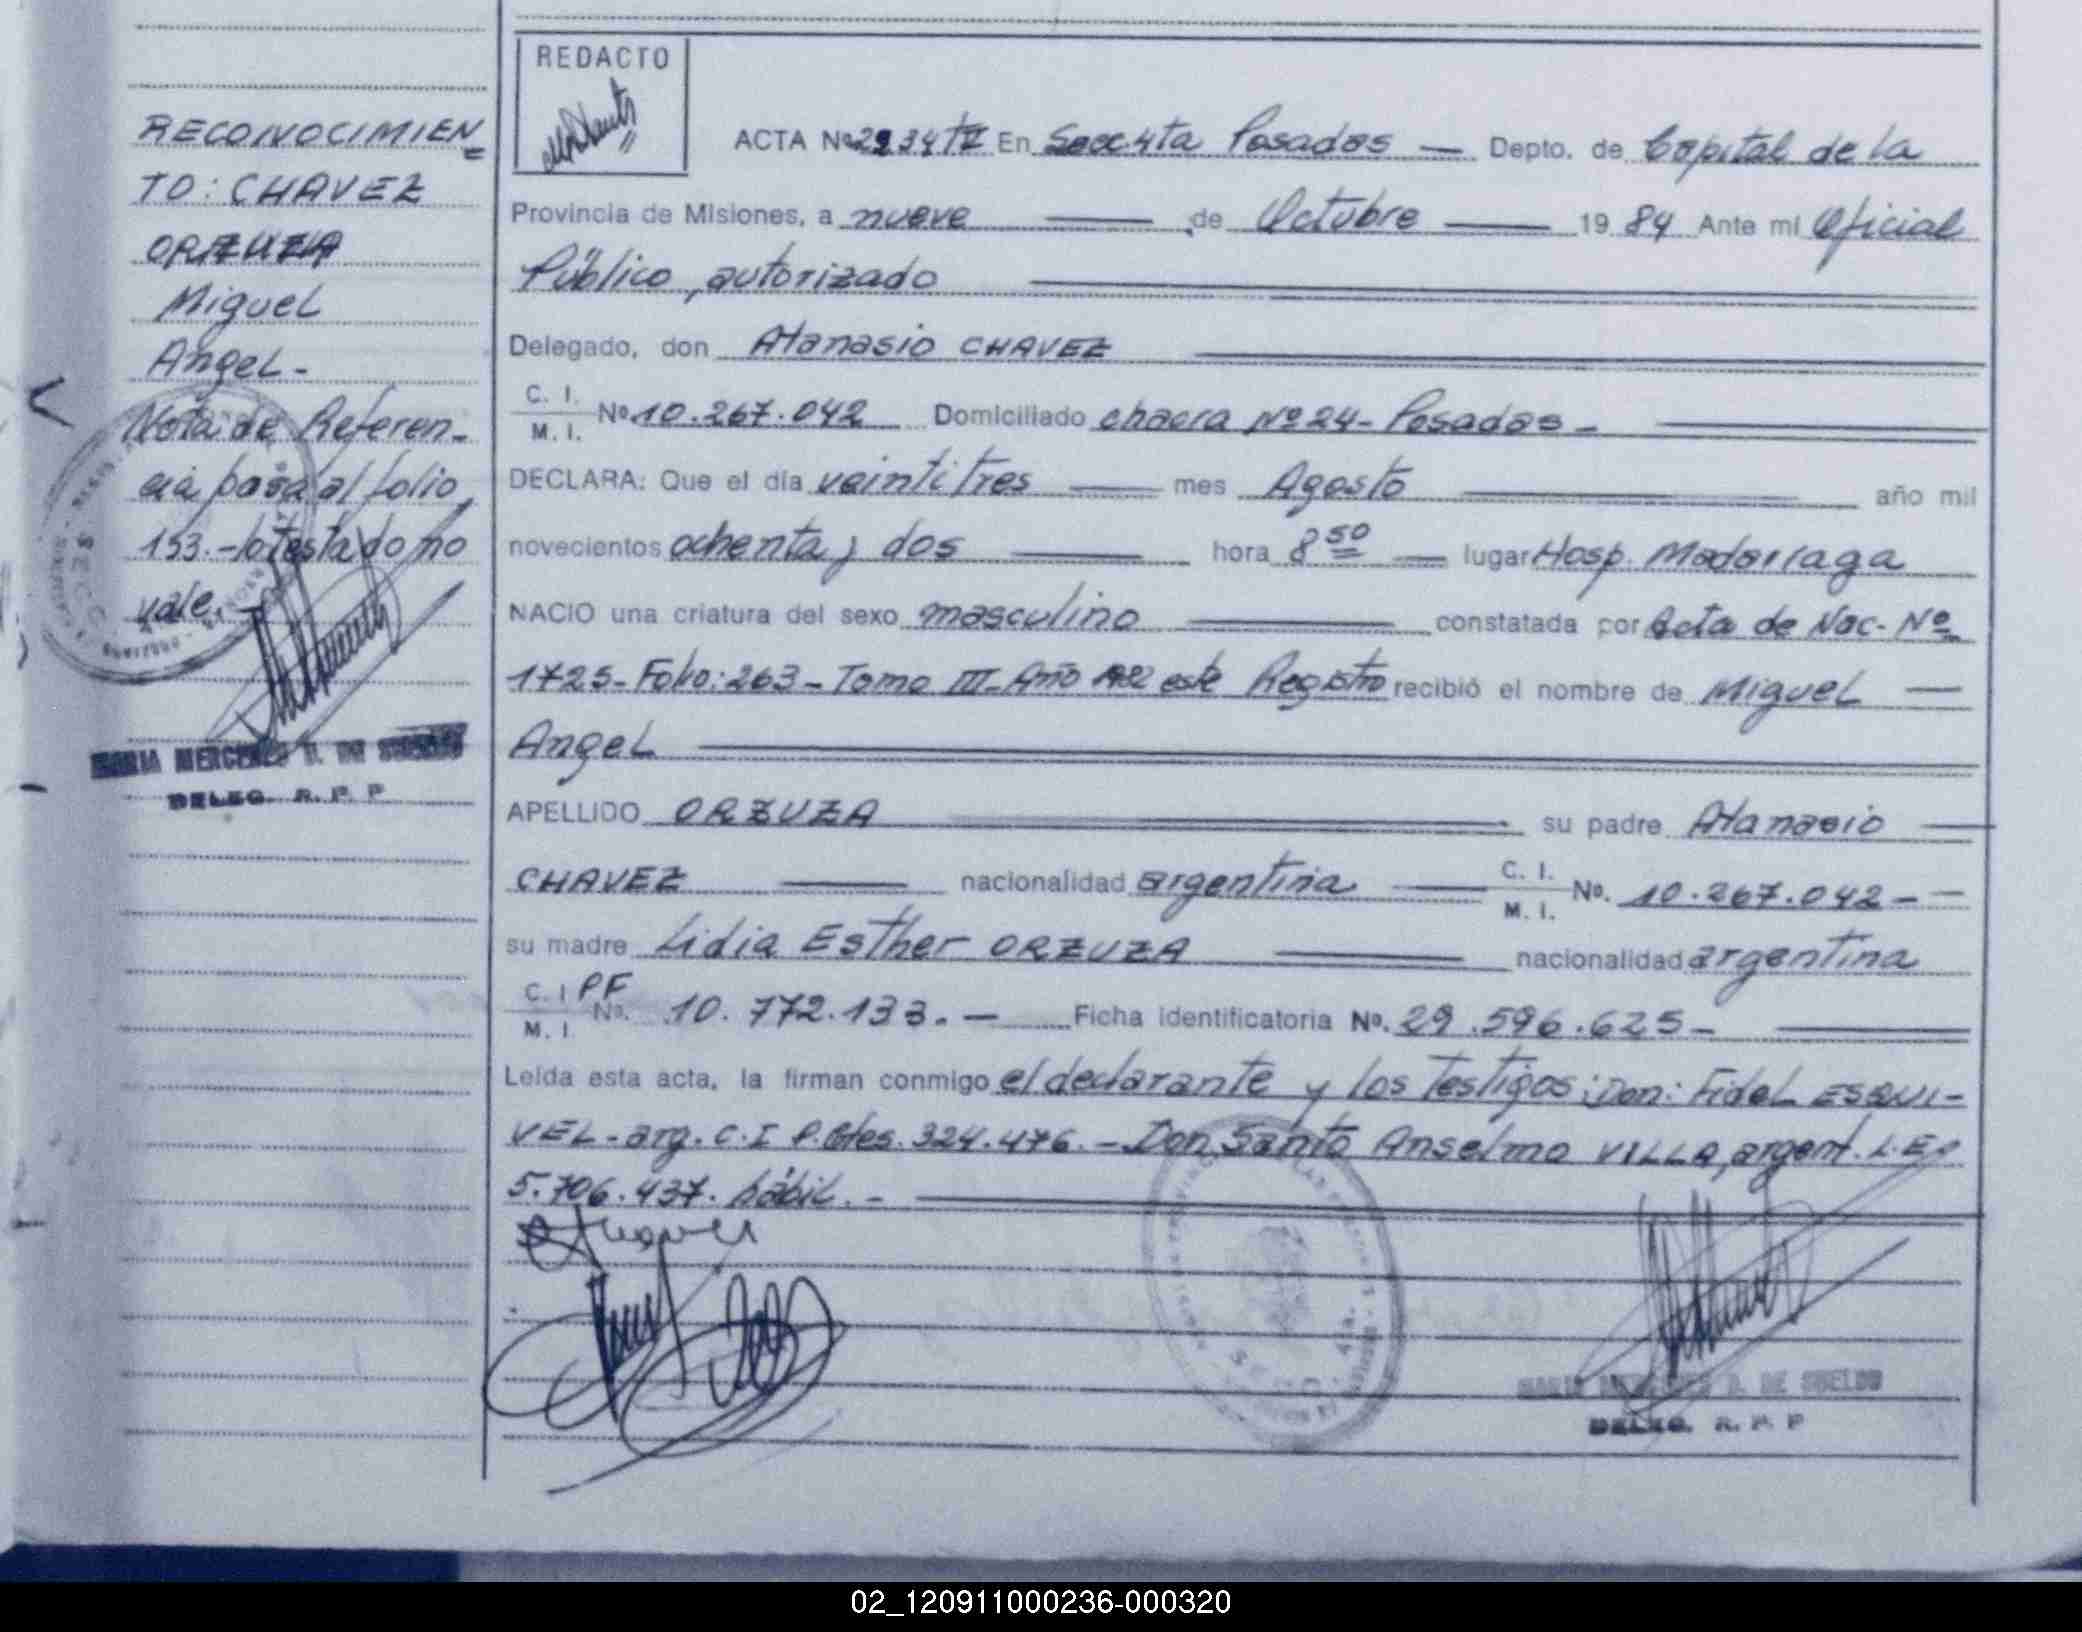 RECONOCIMIEN
TO: CHAVEZ
ORZUZA
Miguel
Angel-
Nota: de Referen-
cia pasa al folio
153.- lo testado no
vale.-
MARIA MERCEDES D. DE SUELDO
DELEG. R. P. P
REDACTO
ACTA Nº 2234 TI En Secc 4ta Posadas — Depto. de Capital de la
Provincia de Misiones, a nueve — de Octubre — 1984 Ante mi Oficial
Público, autorizado
Delegado, don Atanasio CHAVEZ
C. I. M. I. Nº 10.267.042 Domiciliado chacra Nº 24- Posadas -
DECLARA: Que el día veintitres — mes Agosto — año mil
novecientos ochenta y dos — hora 8 50 — lugar Hosp. Madariaga
NACIO una criatura del sexo masculino — constatada por Acta de Nac- Nº
1725- Folio: 263 - Tomo III- Año 1982 este Registro recibió el nombre de Miguel —
Angel
APELLIDO ORZUZA — su padre Atanasio —
CHAVEZ — nacionalidad argentina — C. I. M. I. Nº. 10.267.042 - -
su madre Lidia Esther ORZUZA — nacionalidad argentina
C. I PF M. I. Nº. 10.772.133. - Ficha identificatoria Nº. 29.596.625-
Leída esta acta, la firman conmigo el declarante y los testigos; Don: Fidel ESQUI-
VEL- arg. C. I P. Mes. 324.476. - Don Santo Anselmo VILLA, argent. L.E.
5.706.437. hábil. -
MARIA MERCEDES D. DE SUELDO
DELEG. R. P. P
02_120911000236-000320